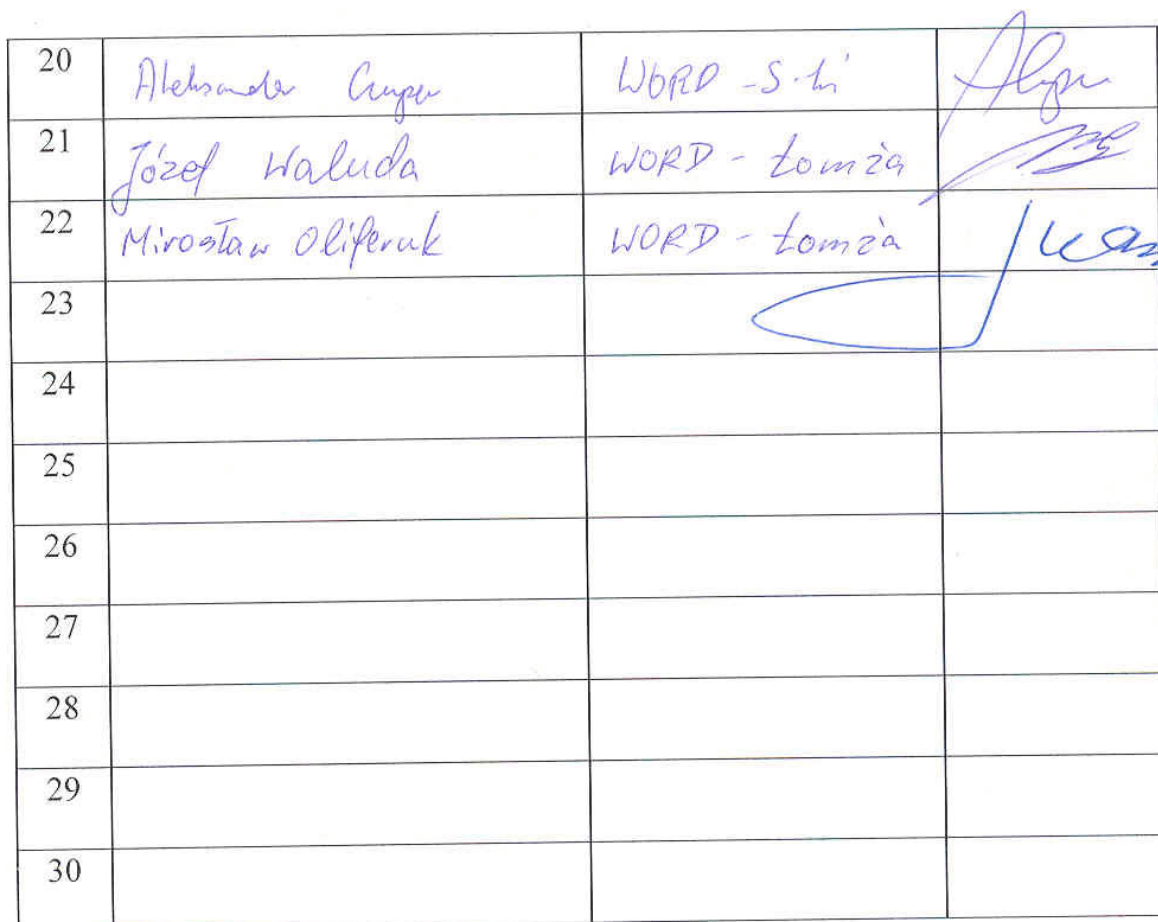 20 Aleksander WORD - S-ki
21 Józef Waluda WORD - Łomża
22 Mirosław Oliferuk WORD - Łomża
23
24
25
26
27
28
29
30